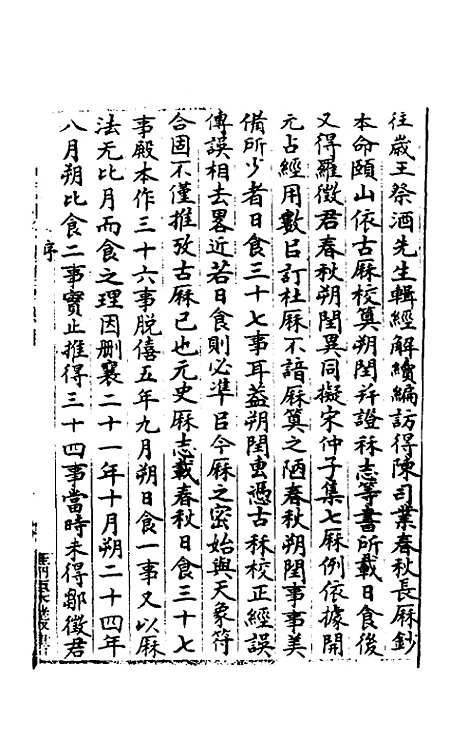 往歲王祭酒先生輯經解續編訪得陳司業春秋長厤鈔
本命頤山依古厤校算朔閏并證秝志等書所載日食後
又得羅徵君春秋朔閏異同擬宋仲子集七厤例依據開
元占經用數㠯訂杜厤不諳厤算之陋春秋朔閏事事美
備所少者日食三十七事耳葢朔閏重憑古秝校正經誤
傳誤相去畧近若日食則必準㠯今厤之密始與天象符
合固不僅推攷古厤已也元史厤志載春秋日食三十七
事殿本作三十六事脫僖五年九月朔日食一事又以厤
法无比月而食之理因刪襄二十一年十月朔二十四年
八月朔比食二事實止推得三十四事當時未得鄒徵君
序